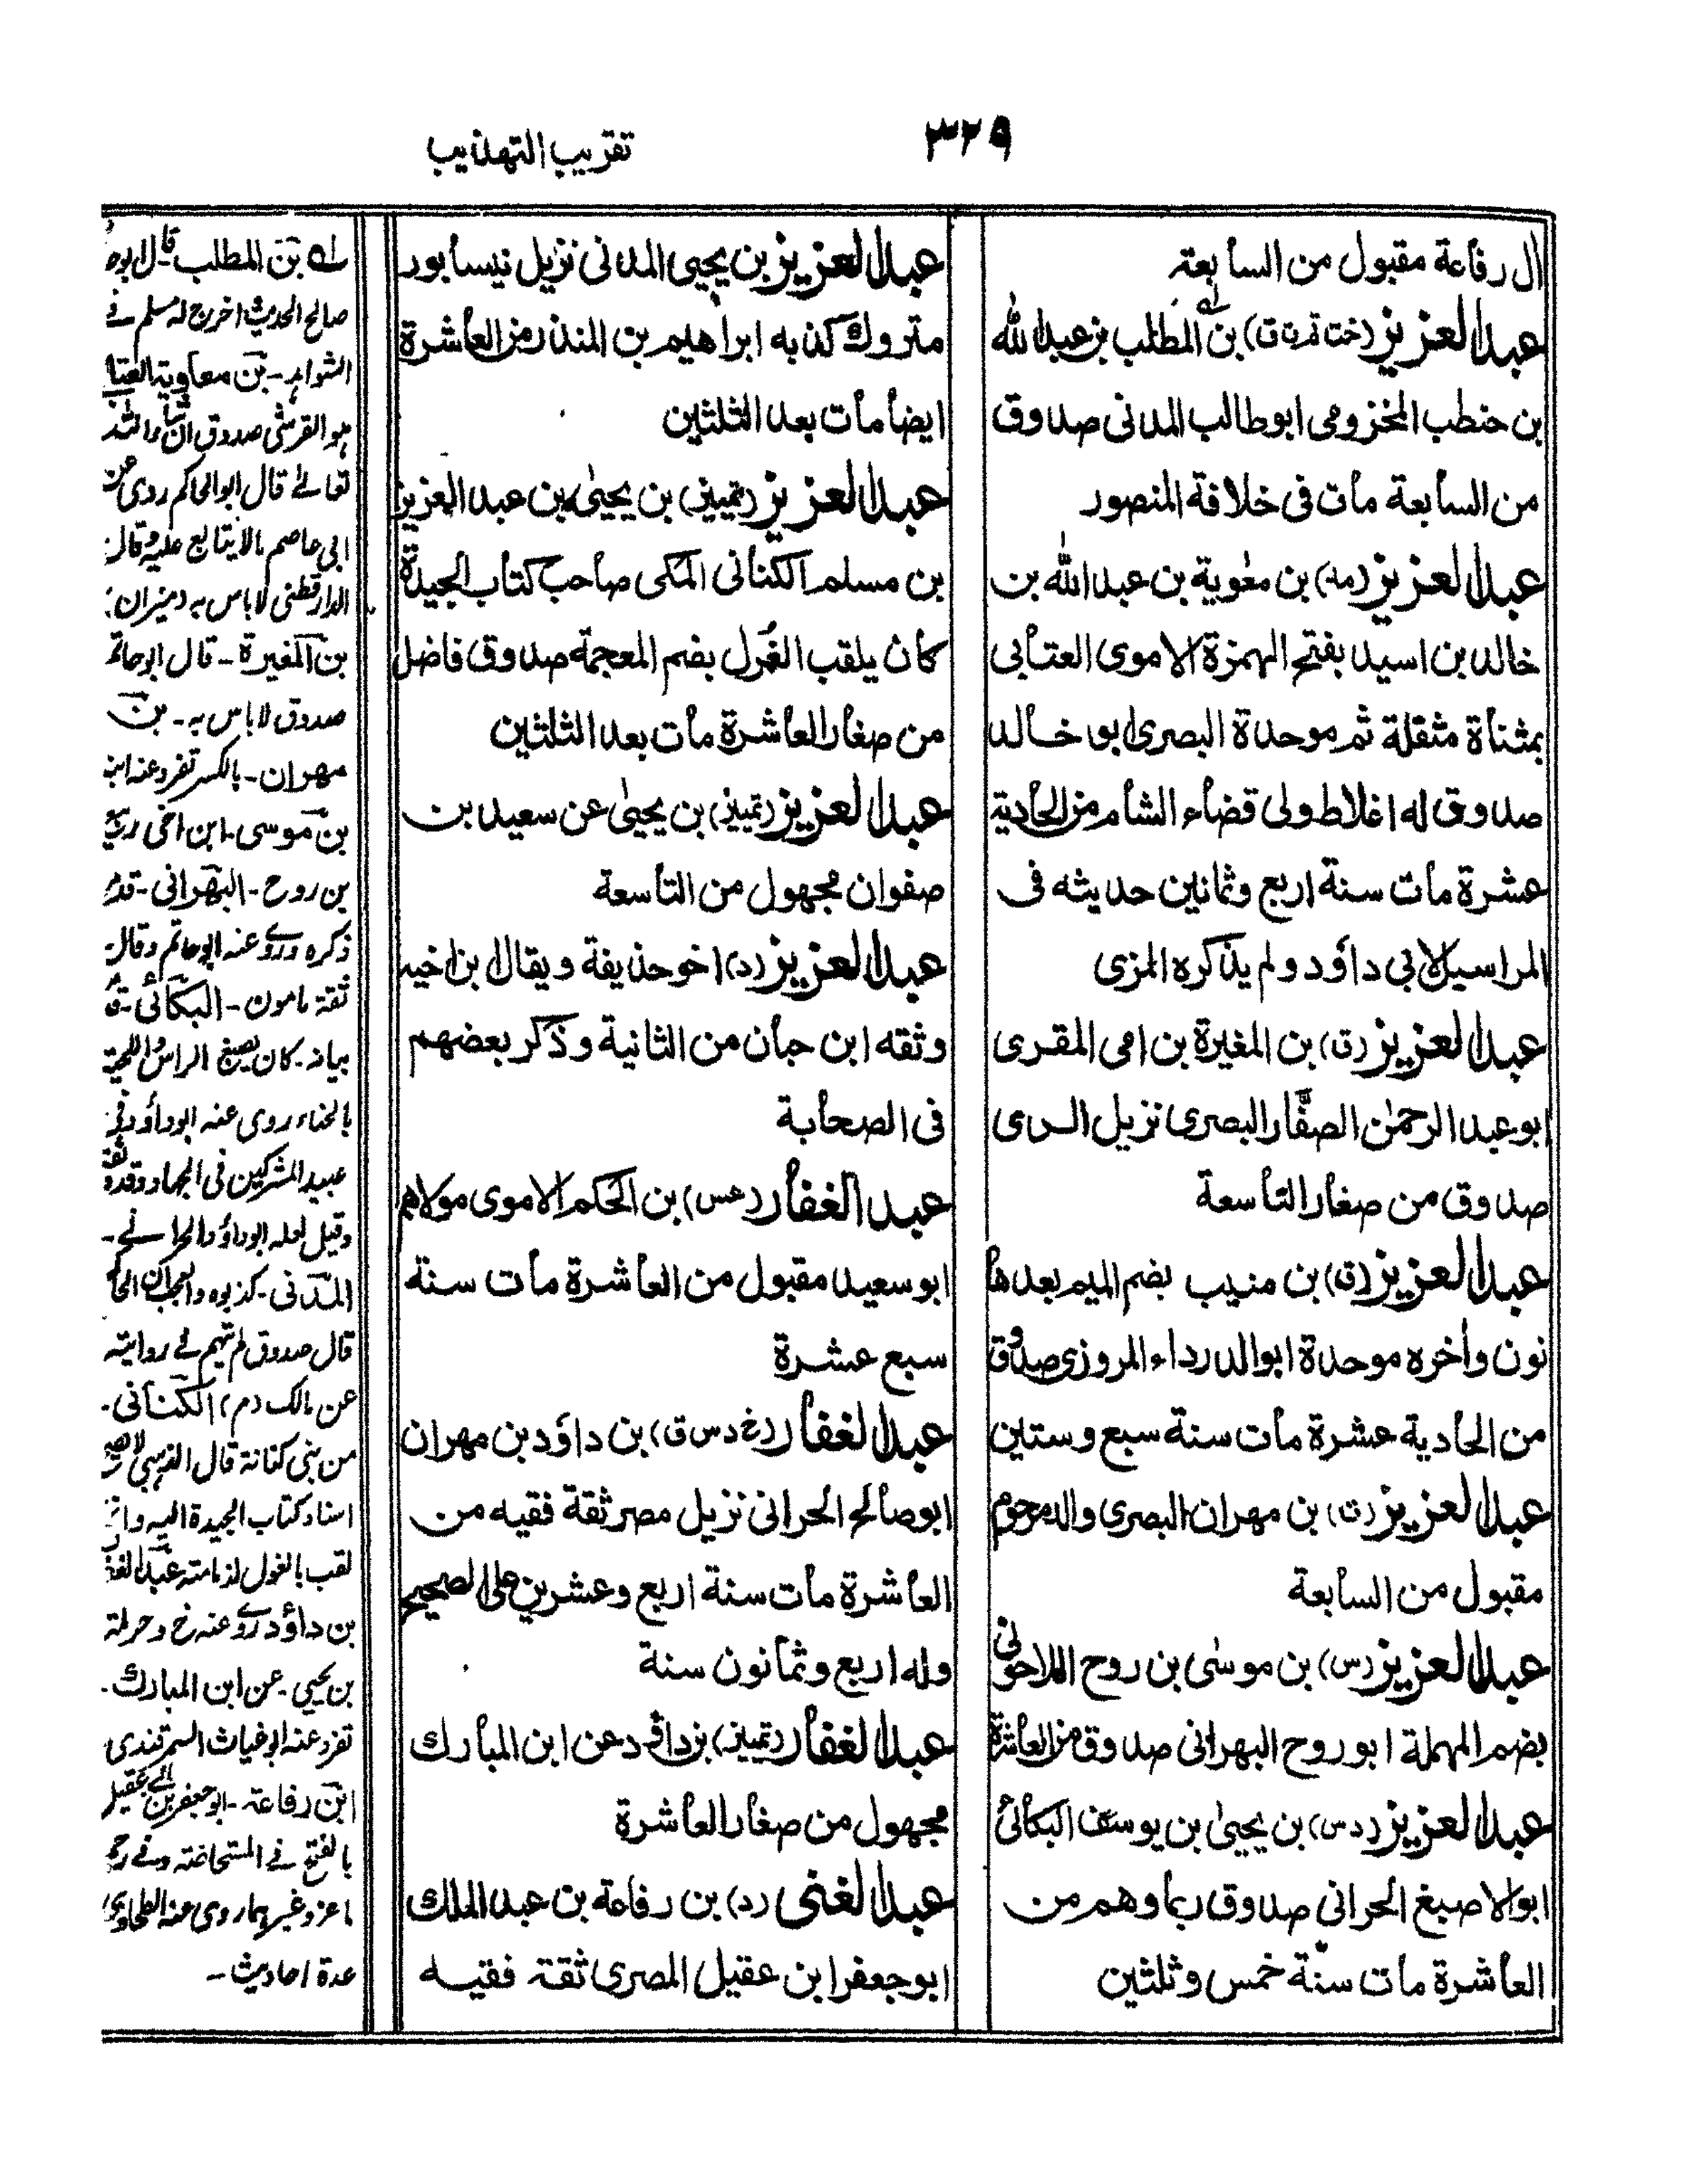 ٣٢٩
تقريب التهذيب
ال رفاعة مقبول من السابعة
عبد العزيز (خت م ت ق) بن المطلب بن عبد الله
بن حنطب المخزومى ابو طالب المدنى صدوق
من السابعة مات فى خلافة المنصور
عبد العزيز (مد) بن معٰوية بن عبد الله بن
خالد بن اسيد بفتح الهمزة الاموى العتابى
بمثناة مثقلة ثم موحدة البصرى ابو خالد
صدوق له اغلاط ولى قضاء الشام من الحادية
عشرة مات سنة اربع وثمانين حديثه فى
المراسيل لابى داؤد ولم يذكره المزى
عبد العزيز (ق) بن المغيرة بن امى المقرى
ابو عبد الرحمٰن الصفّار البصرى نزيل الرى
صدوق من صغار التاسعة
عبد العزيز (ق) بن منيب بضم الميم بعدها
نون وأخره موحدة ابو الدرداء المروزى صدوق
من الحادية عشرة مات سنة سبع وستين
عبد العزيز (ت) بن مهران البصرى والد مرحوم
مقبول من السابعة
عبد العزيز (س) بن موسٰى بن روح اللاحونى
بضم المهملة ابو روح البهرانى صدوق من العاشرة
عبد العزيز (د س) بن يحيىٰ بن يوسف البكائى
ابو الاصبغ الحرانى صدوق ربما وهم من
العاشرة مات سنة خمس وثلثين
عبد العزيز بن يحيى المدنى نزيل نيسابور
متروك كذبه ابراهيم بن المنذر من العاشرة
ايضا مات بعد الثلثين
عبد العزيز (تمييز) بن يحيىٰ بن عبد العزيز
بن مسلم الكنانى المكى صاحب كتاب الجيدة
كان يلقب الغُول بضم المعجمة صدوق فاضل
من صغار العاشرة مات بعد الثلثين
عبد العزيز (تمييز) بن يحيىٰ عن سعيد بن
صفوان مجهول من التاسعة
عبد العزيز (د) اخو حذيفة ويقال ابن اخيه
وثقه ابن حبان من الثانية وذكر بعضهم
فى الصحابة
عبد الغفار (عس) بن الحكم الاموى مولاهم
ابو سعيد مقبول من العاشرة مات سنة
سبع عشرة
عبد الغفار (خ د س ق) بن داؤد بن مهران
ابو صالح الحرانى نزيل مصر ثقة فقيه من
العاشرة مات سنة اربع وعشرين على الصحيح
وله اربع وثمانون سنة
عبد الغفار (تمييز) بن داؤد عن ابن المبارك
مجهول من صغار العاشرة
عبد الغنى (د) بن رفاعة بن عبد الملك
ابو جعفر ابن عقيل المصرى ثقة فقيه
له بن المطلب قال ابو
صالح الحديث اخرج له مسلم فى
الشواهد - بن معاوية العتا
هو القرشى صدوق ان شاء الله
تعالى قال ابو الحاكم روى عن
ابى عاصم ما لا يتابع عليه وقال
الدارقطنى لا باس به ميزان
بن المغيرة - قال ابو حاتم
صدوق لا باس به - بن
مهران - بالكسر تفرد عنه ابنه
بن موسى - ابن اخى ربيع
بن روح - البهرانى -
ذكره وروى عنه ابو حاتم وقال
ثقة مامون - البكائى -
بيانه - كان يصبغ الراس واللحية
بالحناء روى عنه ابو داؤد فى
عبيد المشركين فى الجهاد وقد
وقيل لعله ابو داؤد الحرانى -
المدنى - كذبوه
قال صدوق لم يتهم فى روايته
عن مالك (م) الكنانى -
من بنى كنانة قال الذهبى
اسناد كتاب الجيدة اليه
لقب بالغول لذمامته عبد الغفا
بن داؤد روى عنه خ وحرملة
بن يحيى - عن ابن المبارك -
تفرد عنه ابو غياث السمرقندى
ابن رفاعة - ابو جعفر بن ابى عقيل
بالفتح فى المستحاضة وفى
ماعز وغيرهما روى عنه الطحاوى
عدة احاديث -